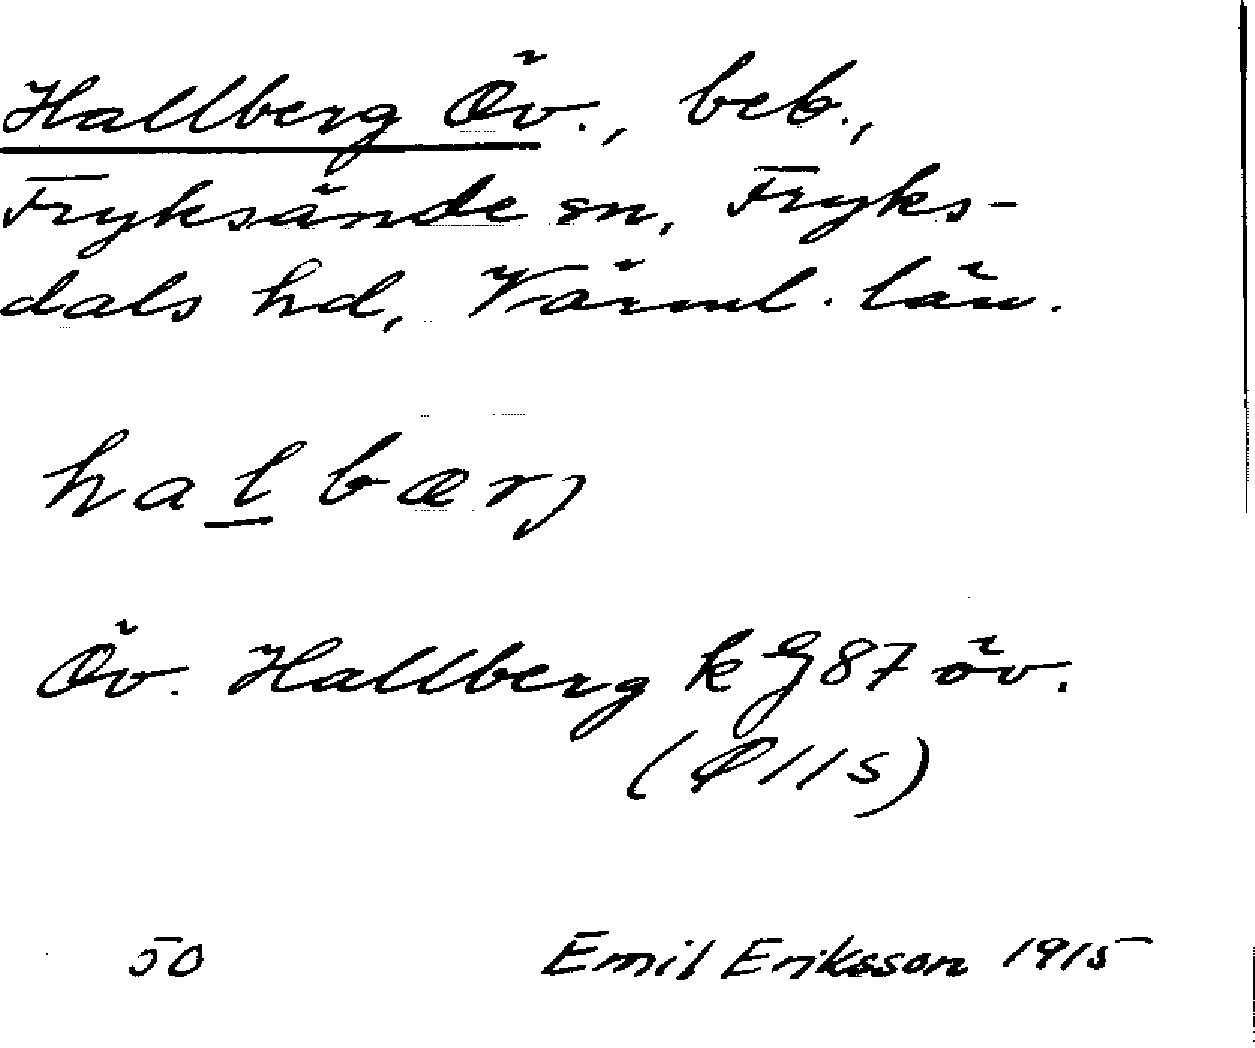 Hallberg Öv., beb.,
Fryksände sn, Fryks-
dals hd, Värml. län.
halbærj
Öv. Hallberg k G87 öv.
50 Emil Eriksson 1915